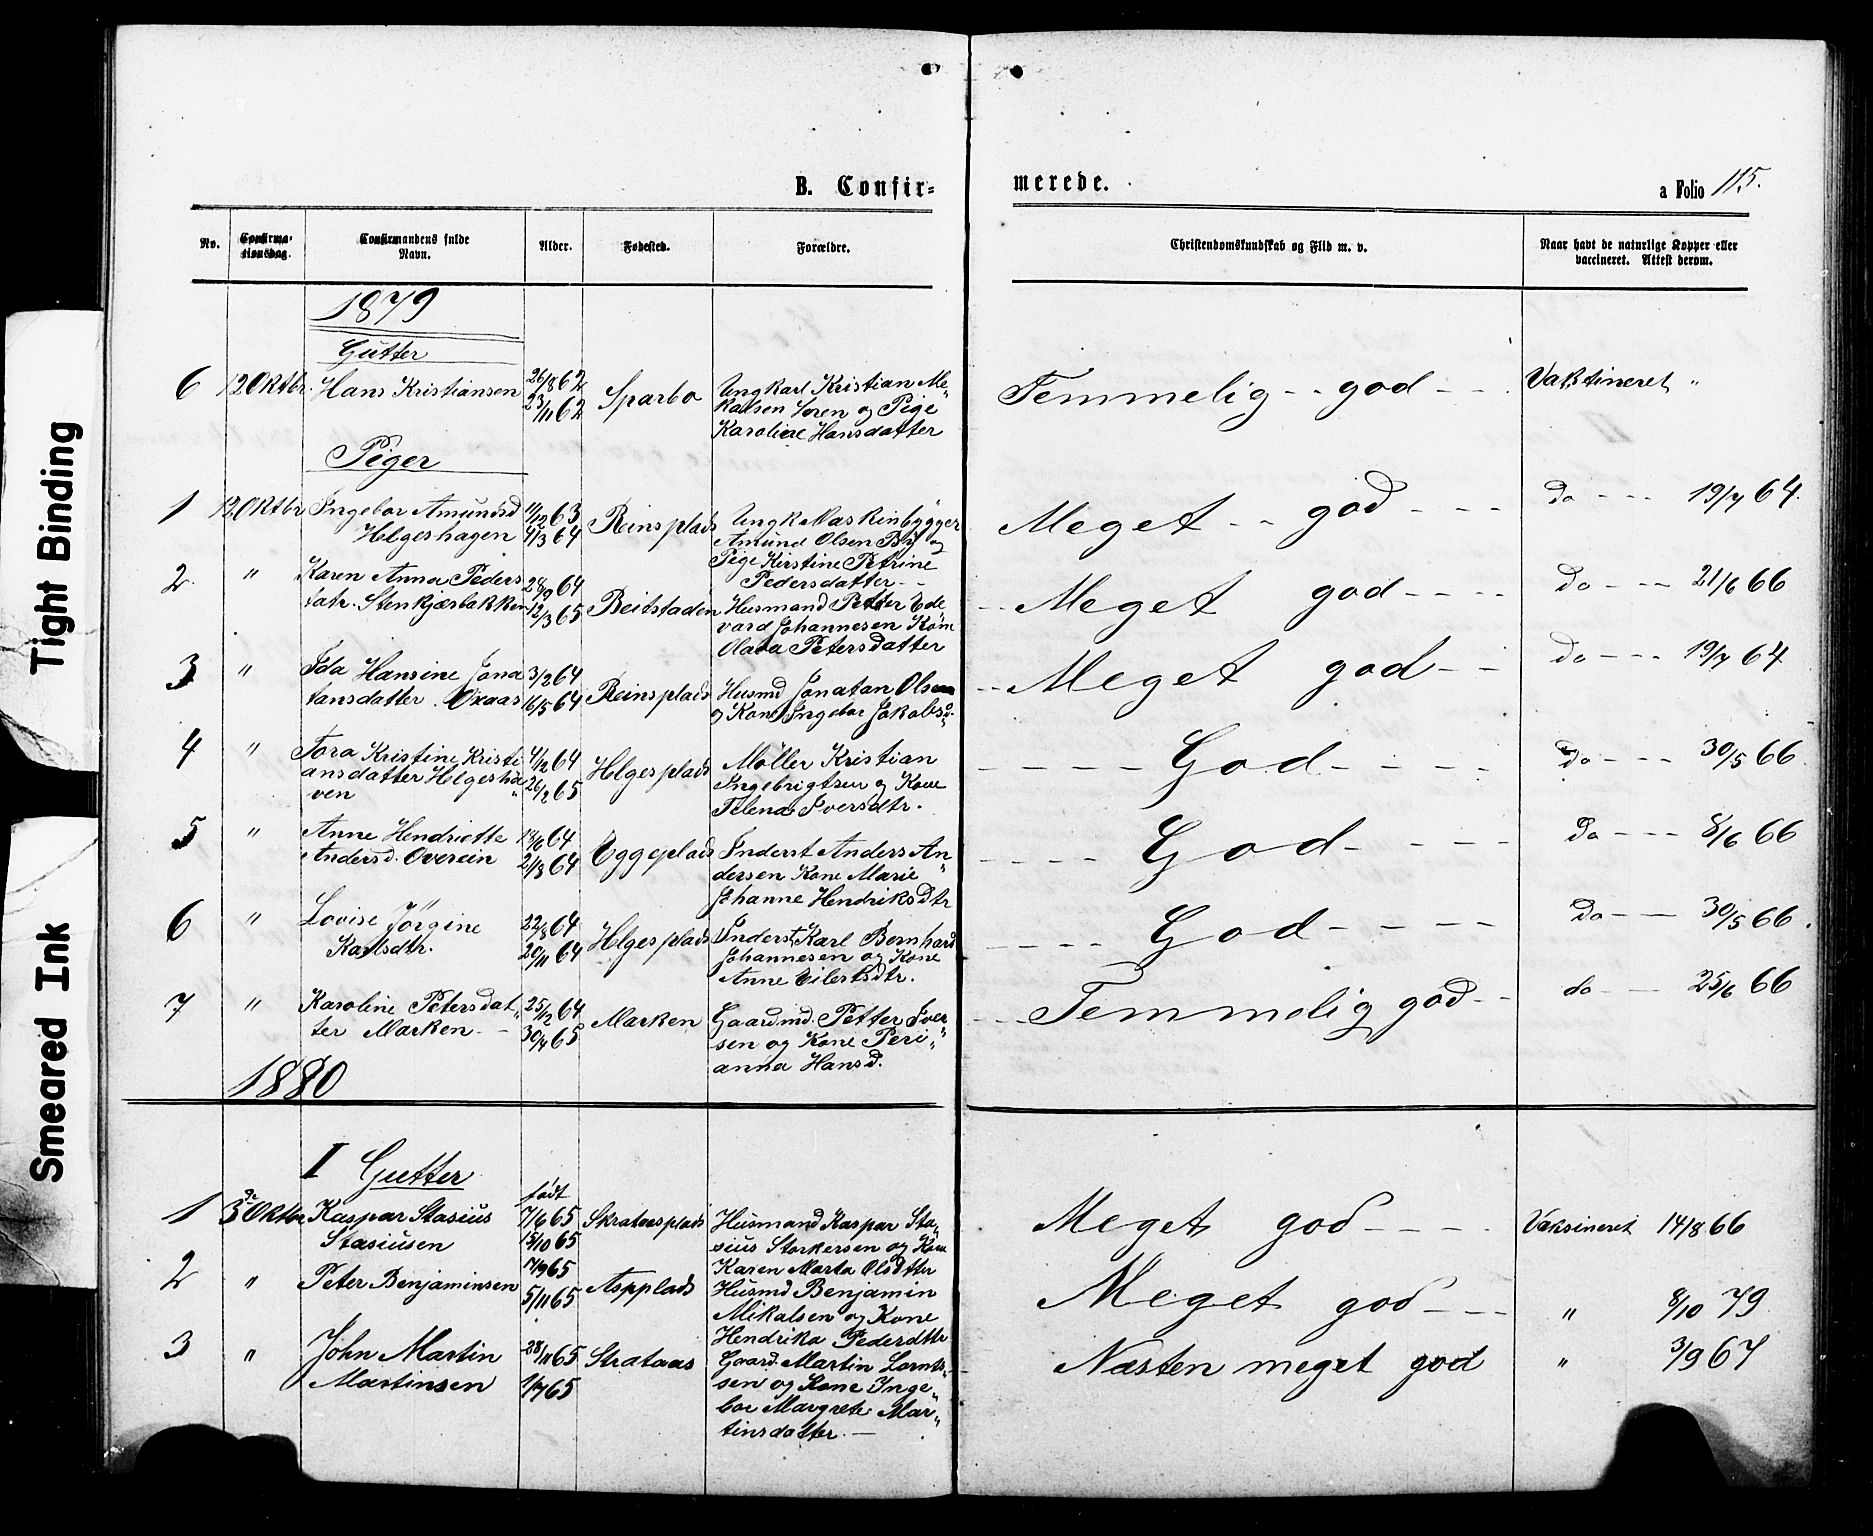 B. Confir=
merede.
a Folio 115.
No.
Confirma-
tionsdag.
Confirmandens fulde
Navn.
Alder.
Fødested.
Forældre.
Christendomskundskab og Flid m. v.
Naar havt de naturlige Kopper eller
vaccineret. Attest derom.
1879
Gutter
6 12 Oktbr. Hans Kristiansen 26/8 62 Sparbo Ungkarl Kristian Me„ Temmelig - - god - - Vaksineret "
23/11 62 kalsen Soren og Pige
Karoline Hansdatter
Piger
1 12 Oktbr Ingebor Amundsd 11/12 63 Reinsplads Ungk Maskinbygger Meget - - god - - - Do - - - 19/7 64.
Helgeshagen 4/3 64 Amund Olsen By og
Pige Kirstine Petrine
Pedersdatter - -
2. " Karen Anna Peders 28/9 64 Beitstaden Husmand Petter Ede Meget god - - - - Do - - - 21/6 66
datr. Stenkjærbakken 12/3 65 vard Johannesen Kone
Olava Petersdatter
3 " Ida Hansine Jona 3/2 64 Reinsplads Husmd Jonatan Olsen - - Meget god - - Do - - - 19/7 64
tansdatter. Oxaas 16/5 64 og Kone Ingebor Jakobsd.
4 " Tora Kristine Kristi 4/12 64 Helgesplads Møller Kristian - - - - God - - - - Do - - - 30/5 66
ansdatter Helgesha„ 26/2 65 Ingebrigtsen og Kone
ven Iversdtr.
5 " Anne Hendriette 18/6 64 Eggeplads Inderst Anders An„ - - - - God - - - - Do - - - 8/6 66
Andersd. Overein 21/8 64 dersen Kone Marie
Johanne Hendriksdtr
6 " Lovise Jörgine 22/8 64 Helgesplads Inderst Karl Bernhard - - - - God - - - - Do - - 30/5 66.
Karlsdtr. 20/11 64 Johannesen og Kone
Anne Eilertsdtr.
7 " Karoline Petersdat„ 25/12 64 Marken Gaardmd. Petter Iver„ - - Temmelig god - - do - - 25/6 66
ter Marken - - 30/4 65 sen og Kone Peri„
anna Hansd.
1880
I Gutter
født
1 3de Oktbr Kaspar Stasius 7/6 65 Skrataasplads Husmand Kaspar Sta„ Meget god - - - - Vaksineret 14/8 66
Stasiusen 15/10 65 sius Storkersen og Kone
Karen Marta Olsdtter
2 " Peter Benjaminsen 7/9 65 Aspplads Husmd Benjamin Meget god - - - " 8/10 79
5/11 65 Mikalsen og Kone
Hendrika Pederdttr
3 " John Martin 28/11 65 Strataas Gaard. Martin Lornts„ Næsten meget god " 3/9 67
Martinsen 1/7 65 sen og Kone Inge„
bor Margrete Mar„
tinsdatter. —
Tight Binding
Smeared Ink